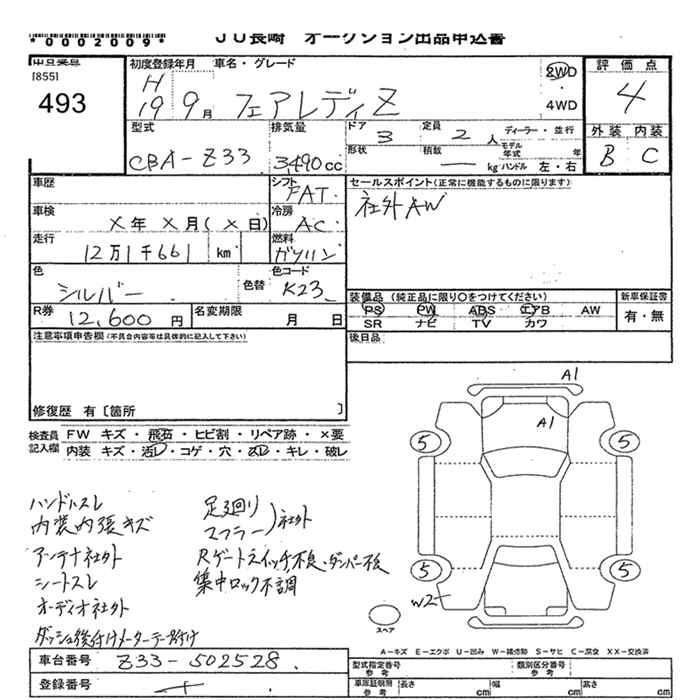 *0002009*
JU長崎 オークション出品申込書
[855]
493
初度登録年月 車名・グレード
H19 9月 フェアレディZ
2WD
4WD
評価点
4
外装 内装
B C
型式 排気量 ドア 3 定員 2人 ディーラー・並行
CBA-Z33 3,490cc 形状 積載 — kg モデル年式 年
ハンドル 左・右
車歴 シフト FAT
セールスポイント(正常に機能するものに限ります)
社外AW
車検 X年 X月(X日) 冷房 AC
走行 12万1千661 km 燃料 ガソリン
色 シルバー 色替 色コード K23
装備品 (純正品に限り○をつけてください) 新車保証書
PS PW ABS エアB AW 有・無
SR ナビ TV カワ
R券 12,600円 名変期限 月 日
後日品
注意事項申告欄(不具合内容等は具体的に記入して下さい)
修復歴 有〔箇所 〕
検査員 FW キズ・飛石・ヒビ割・リペア跡・×要
記入欄 内装 キズ・汚レ・コゲ・穴・凹ミ・キレ・破レ
A1
A1
5 5
5 5
W2
スペア
ハンドルスレ
内装内張キズ
アンテナ社外
シートスレ
オーディオ社外
ダッシュ後付けメーターテープ付け
足廻り
マフラー)社外
Rゲートスイッチ不良・ダンパー不良
集中ロック不調
A-キズ E-エクボ U-凹み W-補修跡 S-サビ C-腐食 XX-交換済
車台番号 Z33-502528
登録番号
型式指定番号 参考 類別区分番号 参考
車庫証明用 参考 長さ cm 幅 cm 高さ cm